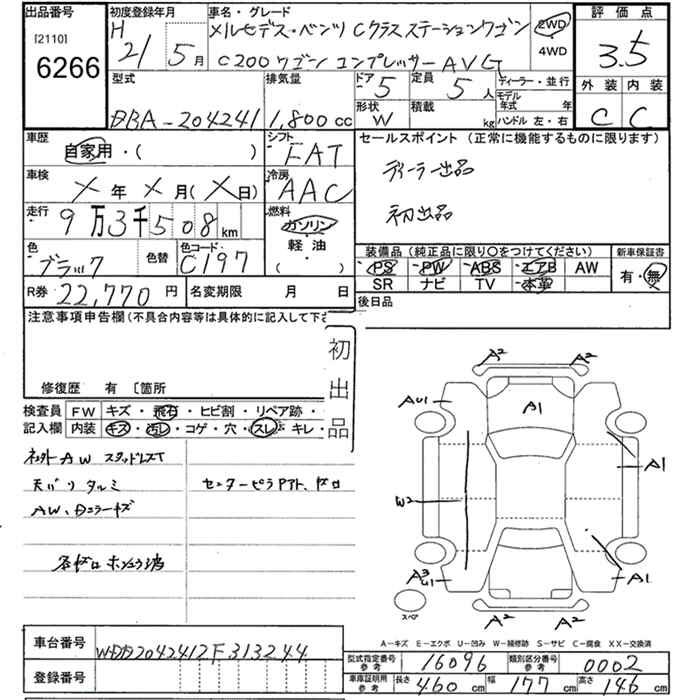 出品番号
[2110]
6266
初度登録年月
H
21 5月
車名・グレード
メルセデス・ベンツ Cクラス ステーションワゴン
C200ワゴン コンプレッサー AVG
2WD
4WD
評価点
3.5
外装 内装
C C
型式
DBA-204241
排気量
1,800 cc
ドア
5
定員
5 人
ディーラー・並行
モデル年式 年
形状
W
積載
kg
ハンドル 左・右
車歴
自家用・( )
シフト
FAT
セールスポイント (正常に機能するものに限ります)
ディーラー出品
初出品
車検
X年 X月(X日)
冷房
AAC
走行
9万3千508km
燃料
ガソリン
軽・油
( )
色
ブラック
色替
色コード
C197
装備品(純正品に限り○をつけてください)
PS PW ABS エアB AW
SR ナビ TV 本革
新車保証書
有・無
R券 22,770円
名変期限 月 日
後日品
注意事項申告欄(不具合内容等は具体的に記入して下さ
初出品
修復歴 有 〔箇所
検査員
記入欄
FW キズ・飛石・ヒビ割・リペア跡・
内装 キズ・汚レ・コゲ・穴・スレ・キレ・
スタッドレス
天バリ タルミ
AW、
センターピラ
A2 A2
AU1
A1
A1
W2
A3
U1
A1
スペア
A2 A2
A-キズ E-エクボ U-凹み W-補修跡 S-サビ C-腐食 XX-交換済
車台番号
WDD2042412F313244
登録番号
型式指定番号
参考
16096
類別区分番号
参考
0002
車庫証明用
参考
長さ 460 cm
幅 177 cm
高さ 146 cm